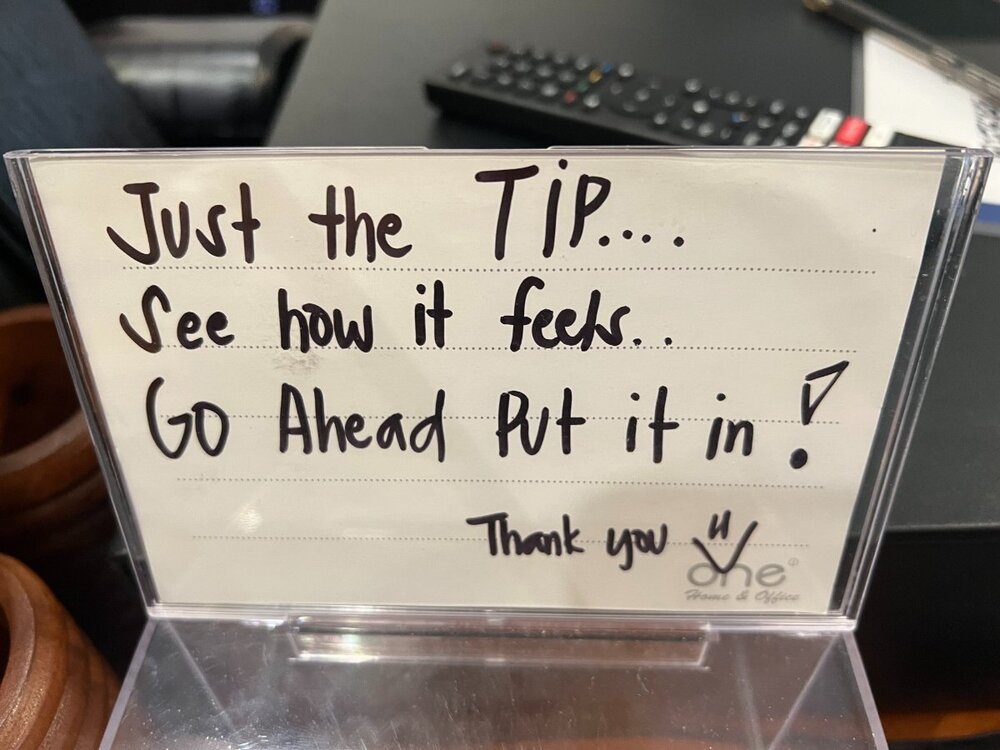 Just the TIP....
See how it feels..
Go Ahead Put it in !
Thank you
one®
Home & Office